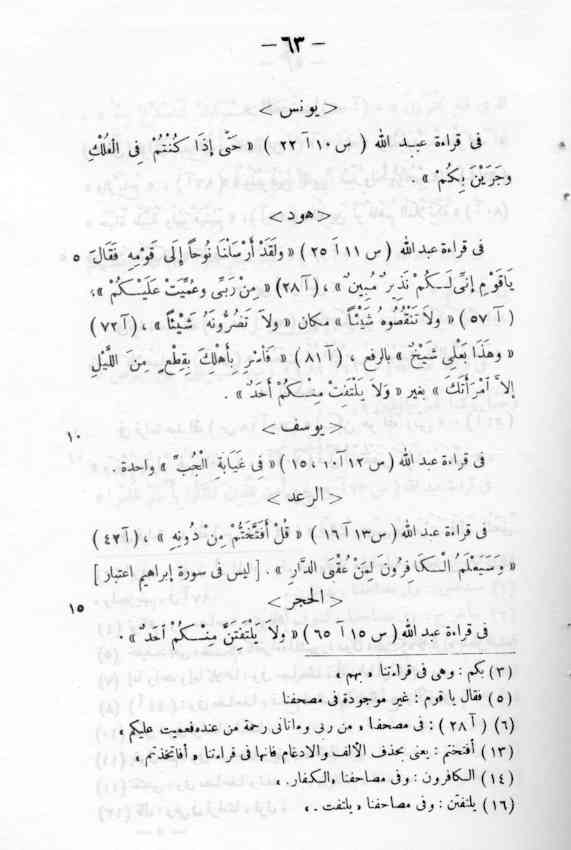 – ٦٣ –
< يونس >
فى قراءة عبد الله ( س ١٠ آ ٢٢ ) « حَتَّى إِذَا كُنْتُمْ فِى الْفُلْكِ
وجَرَيْنَ بِكُمْ » .
< هود >
فى قراءة عبد الله ( س ١١ آ ٢٥ ) « ولَقَدْ أَرْسَلْنَا نُوحاً إِلَى قَوْمِهِ فَقَالَ ٥
يَاقَوْمِ إِنِّى لَـكُمْ نَذِيرٌ مُبِينٌ » ، ( آ ٢٨ ) « مِنْ رَبِّى وعُمِّيَتْ عَلَيْـكُمْ » ،
( آ ٥٧ ) « ولاَ تَنْقُصُوهُ شَيْئاً » مكان « ولاَ تَضُرُّونَهُ شَيْئاً » ، ( آ ٧٢ )
« وهَذَا بَعْلِى شَيْخٌ » بالرفع ، ( آ ٨١ ) « فَأَسْرِ بِأَهْلِكَ بِقِطْعٍ مِنَ اللَّيْلِ
إلاَّ آمْرَأَتَكَ » بغير « وَلاَ يَلْتَفِتْ مِنْـكُمْ أَحَدٌ » .
< يوسف > ١٠
فى قراءة عبد الله ( س ١٢ آ ١٠ ، ١٥ ) « فِى غَيَابَةِ الْجُبِّ » واحدة .
< الرعد >
فى قراءة عبد الله ( س ١٣ آ ١٦ ) « قُلْ أَفَتَّخَتُّمْ مِنْ دُونِهِ » ، ( آ ٤٢ )
« وَسَيَعْلَمُ الْـكَافِرُونَ لِمَنْ عُقْبَى الدَّارِ » . [ ليس فى سورة إبراهيم اعتبار ]
< الحجر > ١٥
فى قراءة عبد الله ( س ١٥ آ ٦٥ ) « ولاَ يَلْتَفِتَنَّ مِنـكُمْ أَحَدٌ » .
( ٣ ) بكم : وهى فى قراءتنا ، بهم ،
( ٥ ) فقال يا قوم : غير موجودة فى مصحفنا
( ٦ ) ( آ ٢٨ ) : فى مصحفنا ، من ربى وءاتانى رحمة من عنده فعميت عليكم ،
( ١٣ ) أفتختم : يعنى بحذف الألف والادغام فانها فى قراءتنا ، أفاتخذتم ،
( ١٤ ) الـكافرون : وفى مصاحفنا ، الـكفار. ،
( ١٦ ) يلتفتن : وفى مصاحفنا ، يلتفت . ،